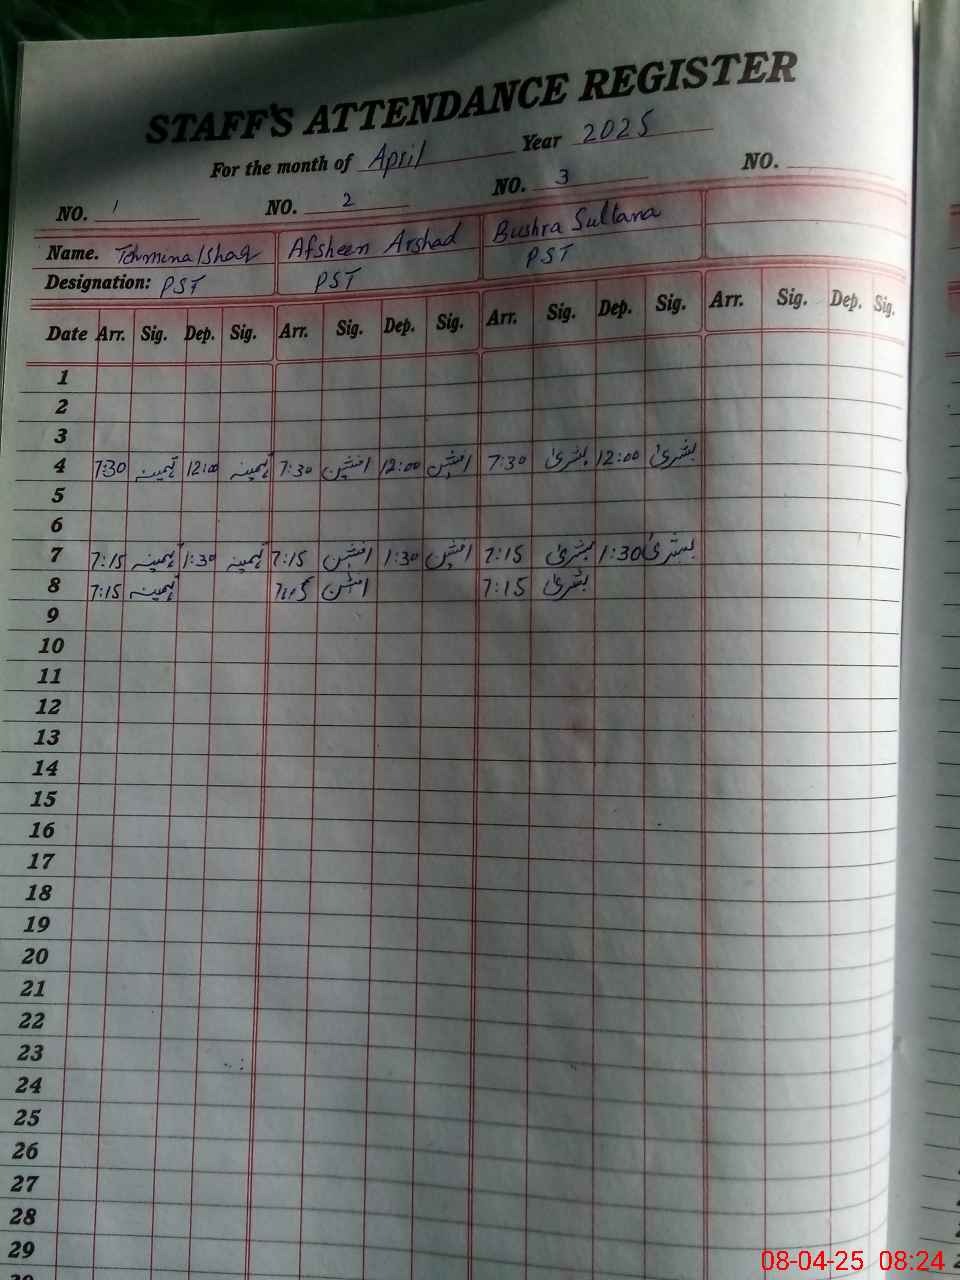 STAFF'S ATTENDANCE REGISTER
For the month of April Year 2025
NO. 1 NO. 2 NO. 3 NO.
Name. Tehmina Ishaq Afsheen Arshad Bushra Sultana
Designation: PST PST PST
Date Arr. Sig. Dep. Sig. Arr. Sig. Dep. Sig. Arr. Sig. Dep. Sig. Arr. Sig. Dep. Sig.
1
2
3
4 7:30 تہمینہ 12:00 تہمینہ 7:30 افشین 12:00 افشین 7:30 بشریٰ 12:00 بشریٰ
5
6
7 7:15 تہمینہ 1:30 تہمینہ 7:15 افشین 1:30 افشین 7:15 بشریٰ 1:30 بشریٰ
8 7:15 تہمینہ 7:15 افشین 7:15 بشریٰ
9
10
11
12
13
14
15
16
17
18
19
20
21
22
23
24
25
26
27
28
29
08-04-25 08:24